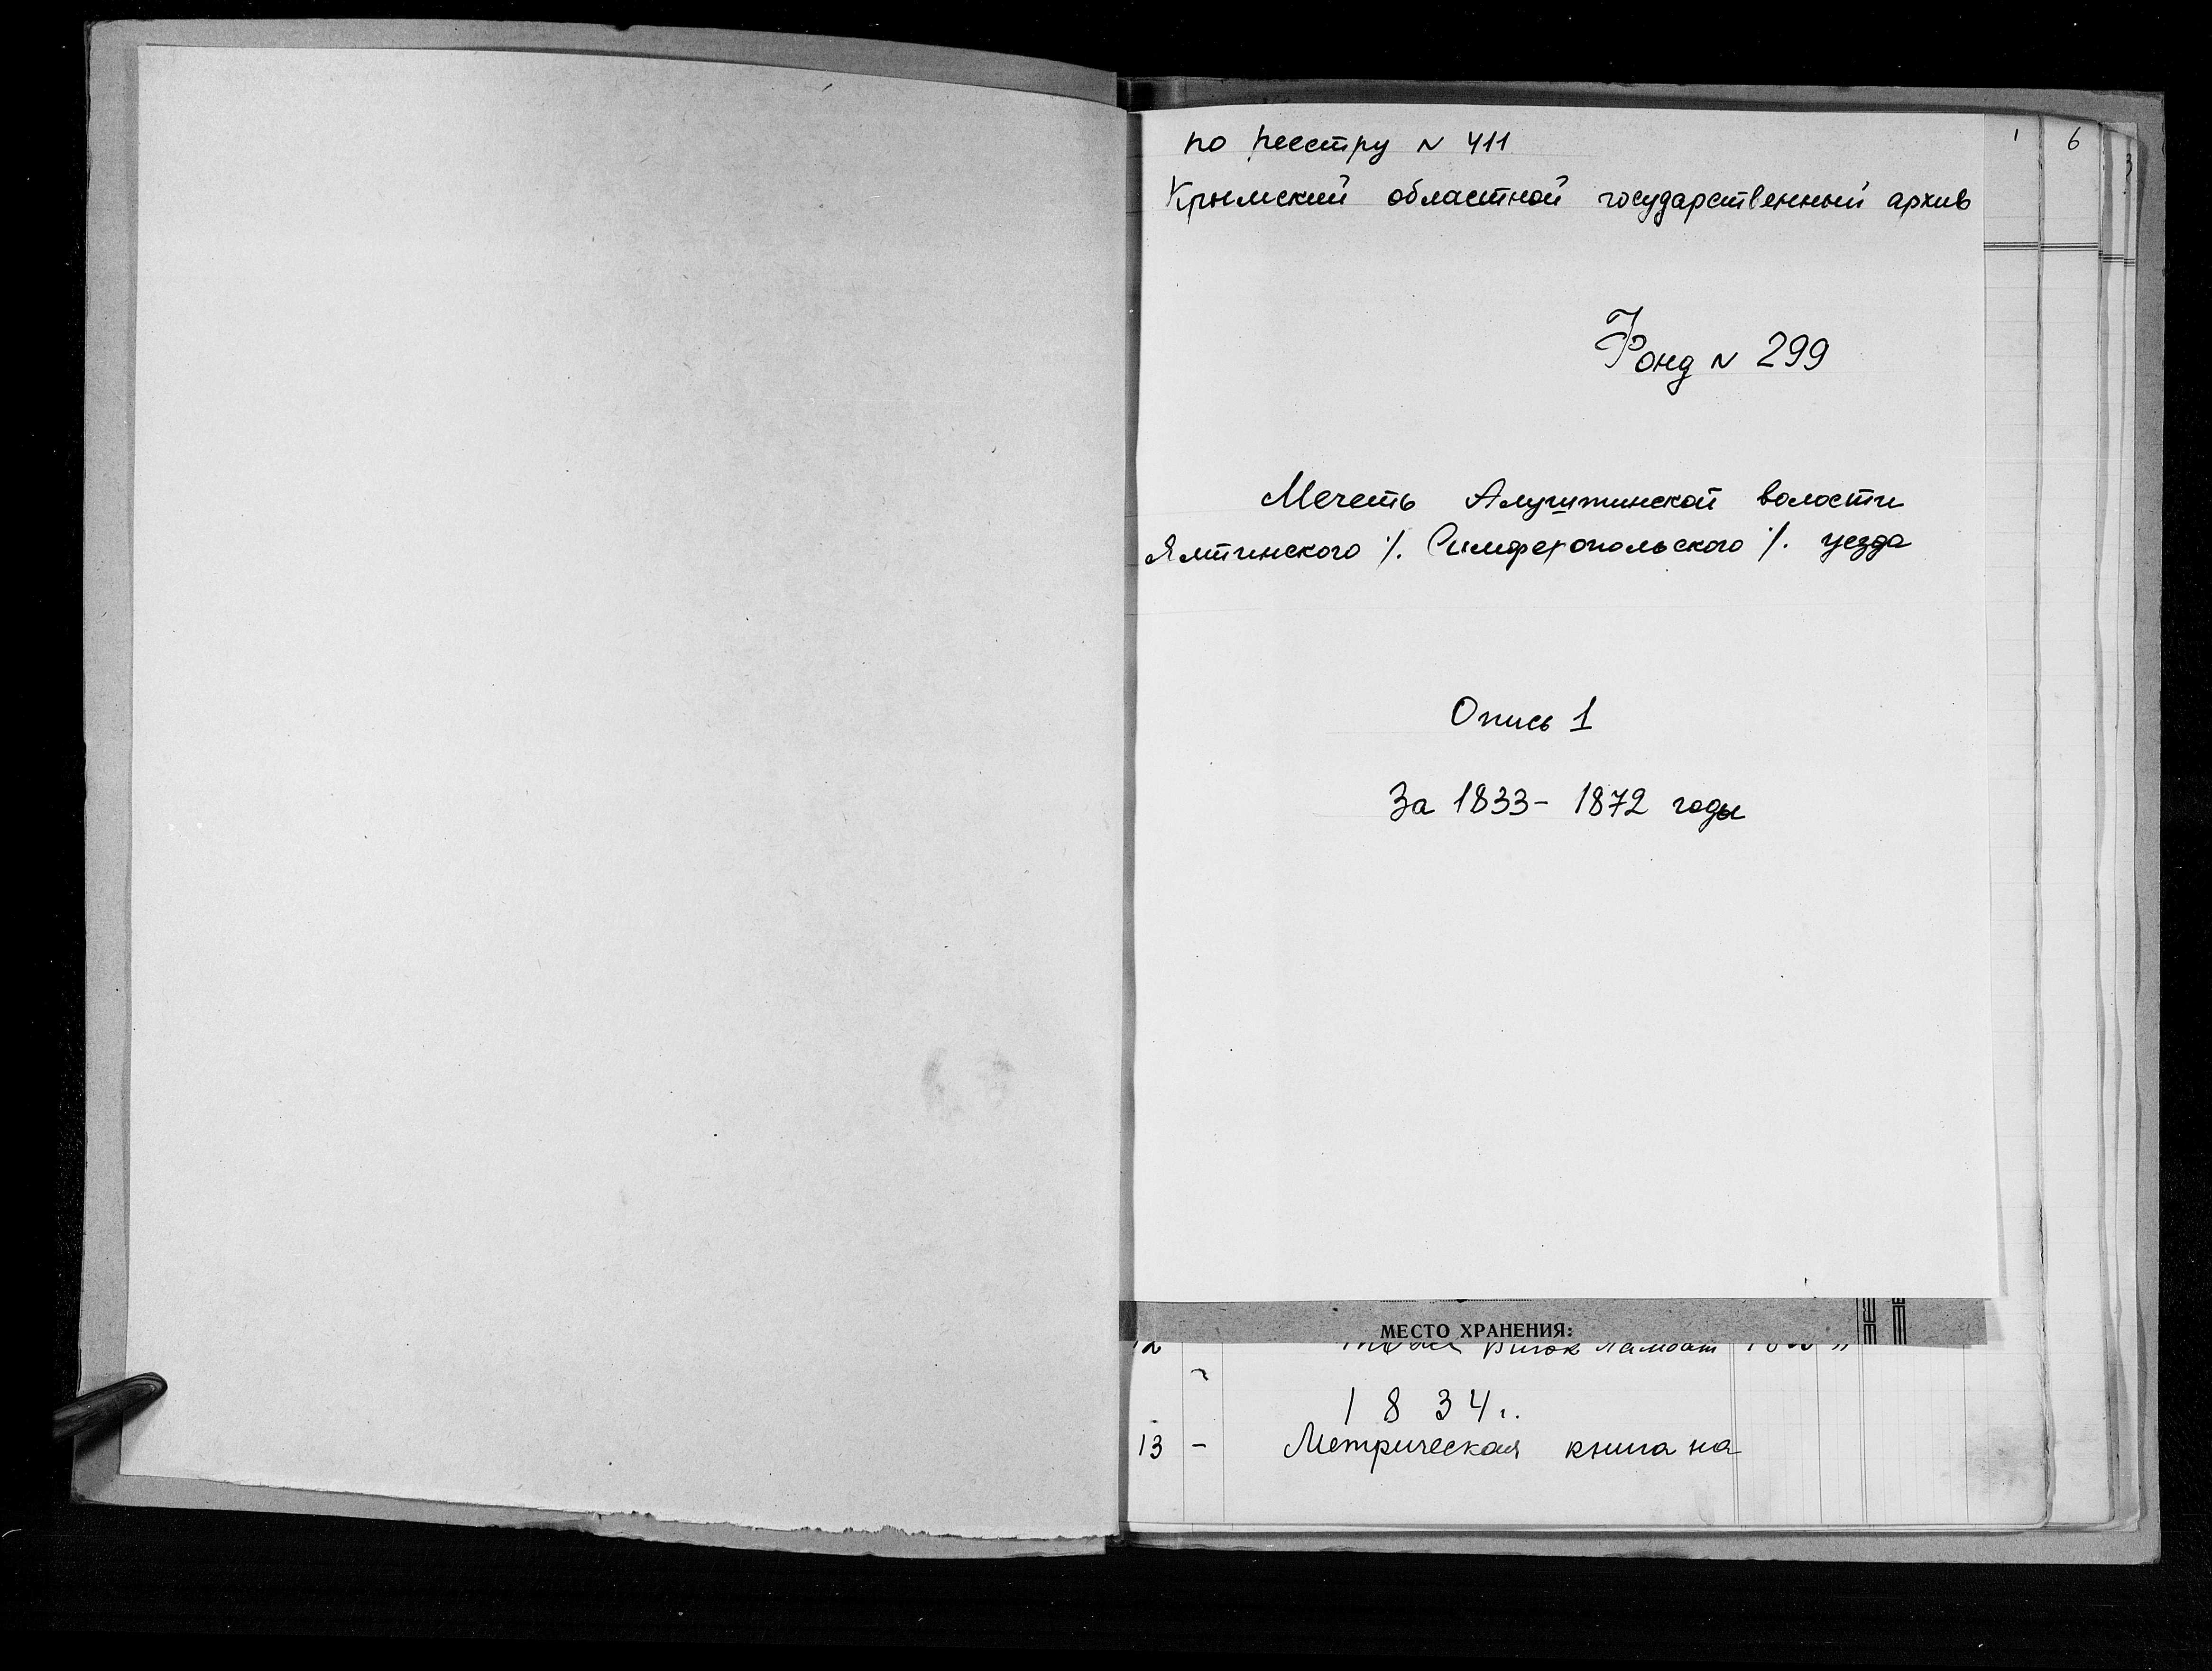 по реестру N 411
Крымский областной государственный архив
1
6
3
Фонд N 299
Мечеть Алуштинской волости
Ялтинского /. Симферопольского /. уезда
Опись 1
За 1833 - 1872 годы
МЕСТО ХРАНЕНИЯ:
12 Биюк Ламбат
1834г.
13 - Метрическая книга на